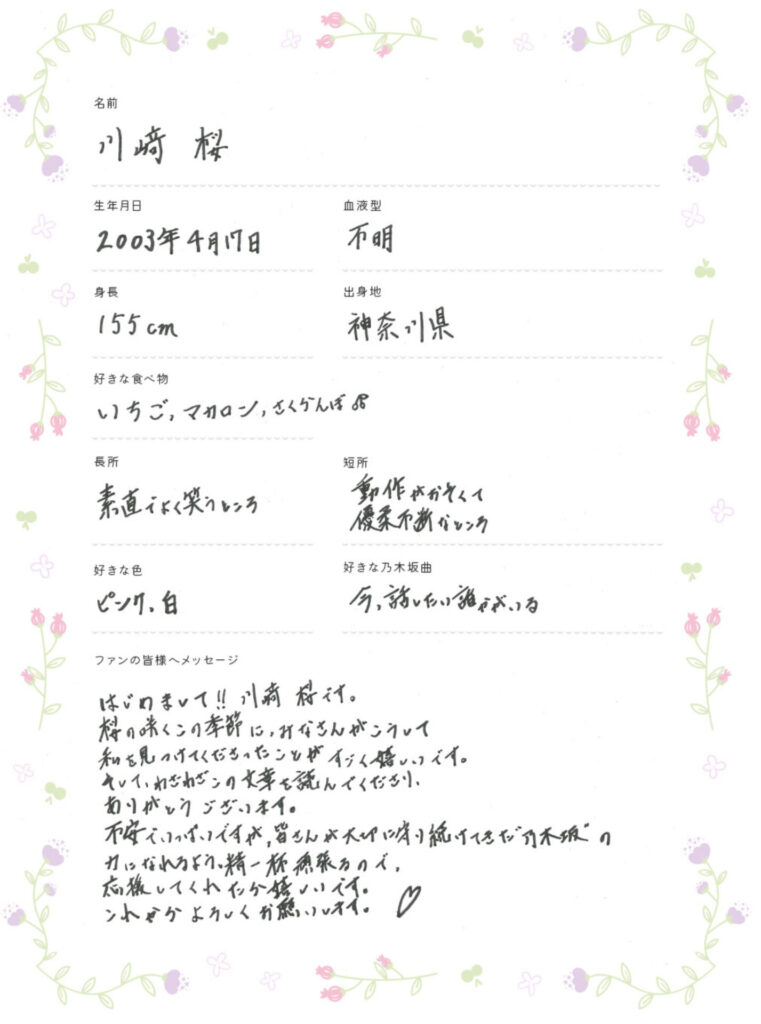 名前
川﨑 桜
生年月日
2003年4月17日
血液型
不明
身長
155cm
出身地
神奈川県
好きな食べ物
いちご,マカロン,さくらんぼ
長所
素直でよく笑うところ
短所
動作がおそくて
優柔不断なところ
好きな色
ピンク,白
好きな乃木坂曲
今,話したい誰かがいる
ファンの皆様へメッセージ
はじめまして!!川﨑 桜です。
桜の咲くこの季節に,みなさんがこうして
私を見つけてくださったことがすごく嬉しいです。
そして,わざわざこの文章を読んでくださり,
ありがとうございます。
不安でいっぱいですが,皆さんが大切に守り続けてきた"乃木坂"の
力になれるよう,精一杯頑張るので,
応援してくれたら嬉しいです。
これからよろしくお願いします。♡